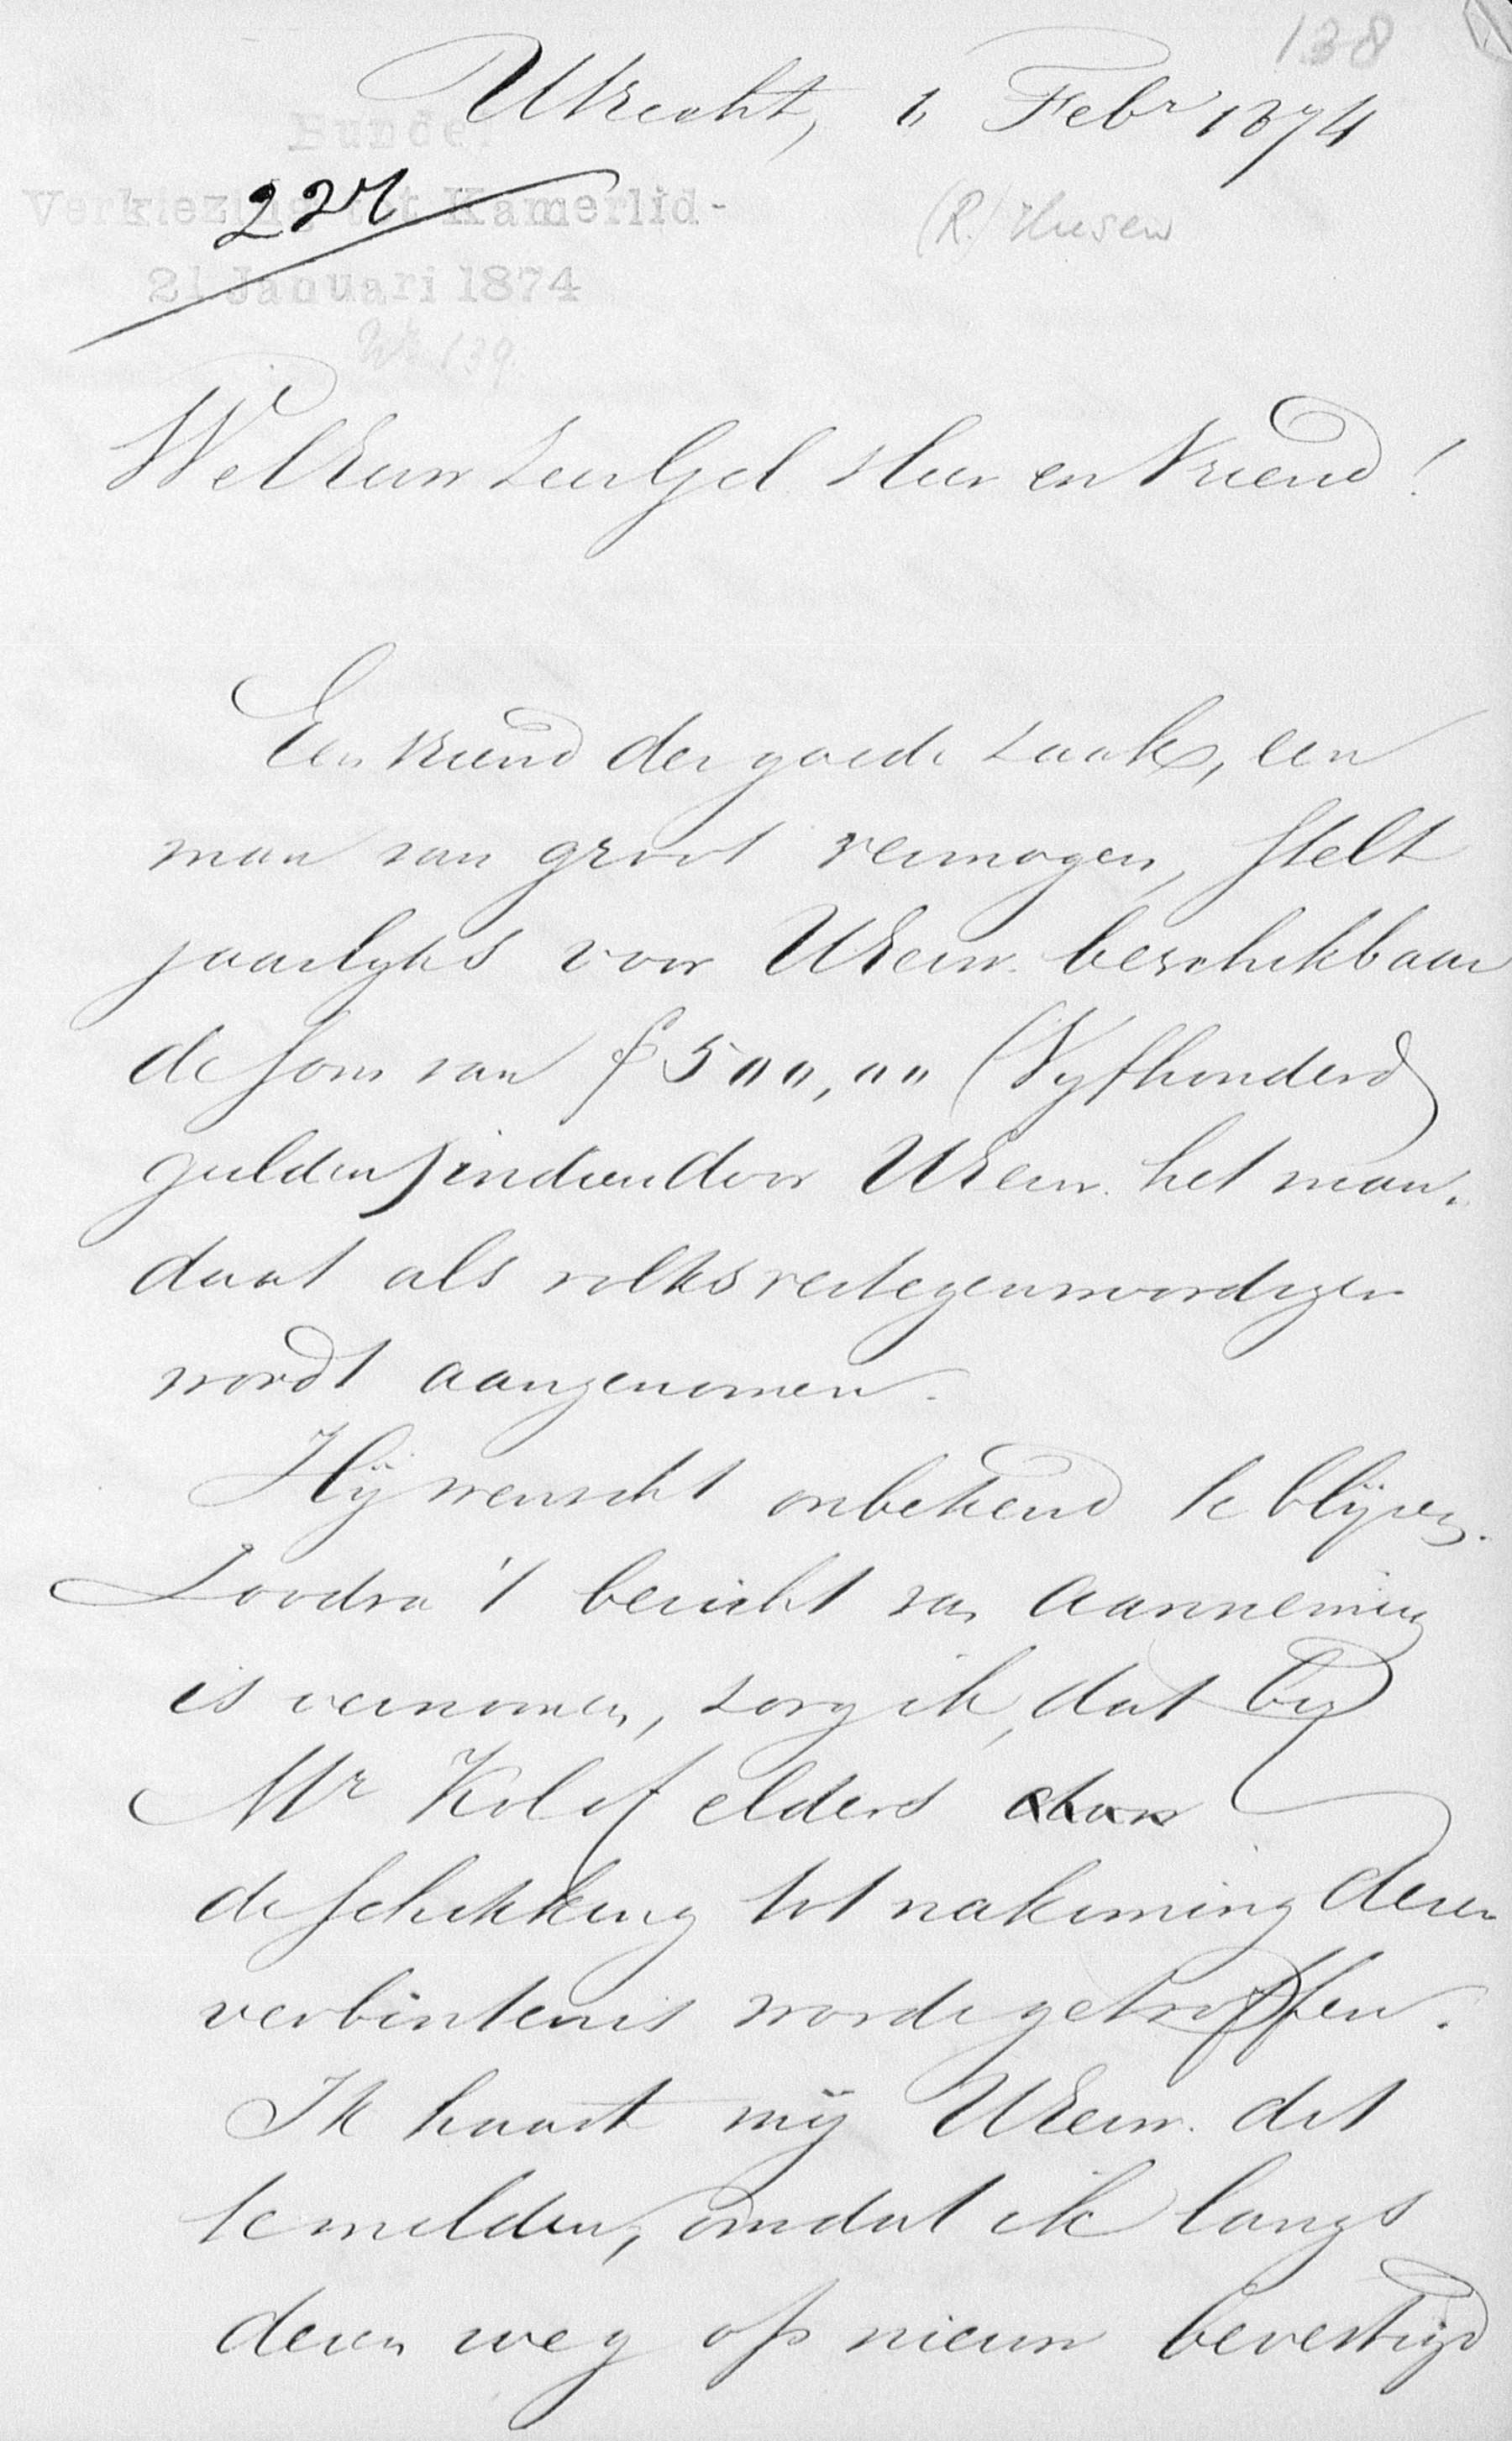 138
Utrecht, 6 Febr 1874
Bundel
Verkiezing tot Kamerlid-
21 Januari 1874
227
(R.) Husen
No 139.
WelEerw ZeerGel Heer en Vriend!
Een vriend der goede zaak, een
man van groot vermogen, stelt
jaarlyks voor UEerw. beschikbaar
de som van f 500,00 (Vyfhonderd
gulden) indien door UEerw. het man-
daat als volksvertegenwoordiger
wordt aangenomen.
Hij wenscht onbekend te blijven.
Zoodra 't bericht van aanneming
is vernomen, zorg ik, dat by
Mr Kol of elders
de schikking tot nakoming dezer
verbintenis worde getroffen.
Ik haast mij UEerw. dit
te melden, omdat ik langs
dezen weg op nieuw bevestigd